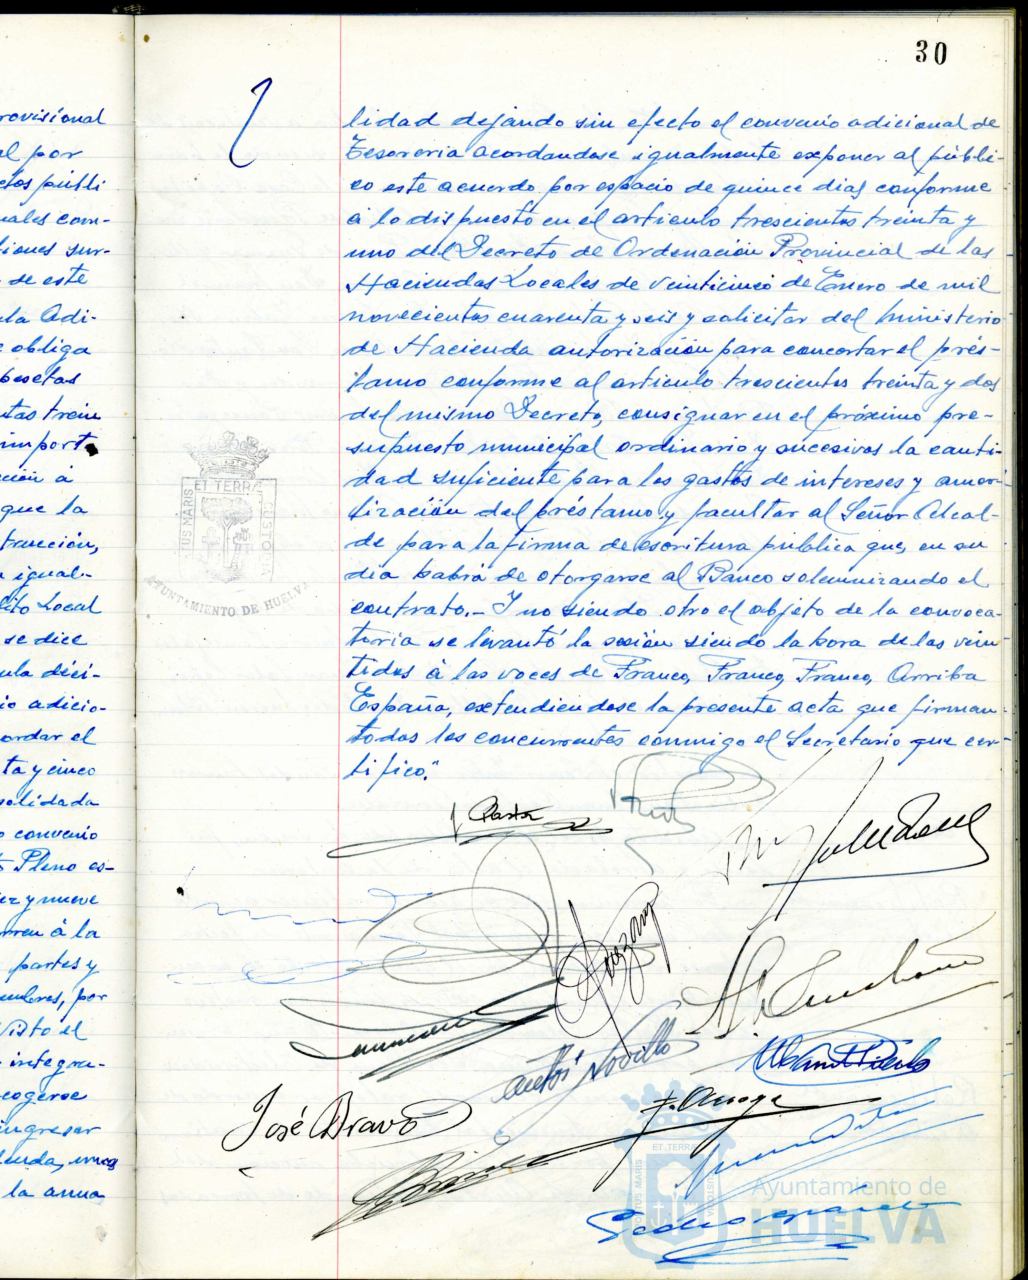 30
rovisional
al por
tos públi
uales com-
iones sur-
de este
ula Adi-
e obliga
pesetas
tas trein
import
ción á
que la
trucción,
igual-
dito Local
se dice
ula déci-
io adicio-
ordar el
ta y cinco
solidada
convenio
Pleno es-
iez y nueve
rren á la
partes y
umbres, por
Visto el
integra-
cogerse
ingresar
la anua
lidad dejando sin efecto el convenio adicional de
Tesoreria acordandose igualmente exponer al públi-
co este acuerdo por espacio de quince dias conforme
á lo dispuesto en el articulo trescientos treinta y
uno del Decreto de Ordenación Provincial de las
Haciendas Locales de veinticinco de Enero de mil
novecientos cuarenta y seis y solicitar del Ministerio
de Hacienda autorización para concertar el prés-
tamo conforme al articulo trescientos treinta y dos
del mismo Decreto, consignar en el próximo pre-
supuesto municipal ordinario y sucesivos la canti-
dad suficiente para los gastos de intereses y amor-
tización del préstamo y facultar al Señor Alcal-
de para la firma de escritura pública que, en su
dia habrá de otorgarse al Banco solemnizando el
contrato.- Y no siendo otro el objeto de la convoca-
toria se levantó la sesión siendo la hora de las vein
tidos á las voces de Franco, Franco, Franco, Arriba
España, extendiendose la presente acta que firman
todos los concurrentes conmigo el Secretario que cer-
tifico."
ET TERRA
TUS MARIS
CUSTODIA
AYUNTAMIENTO DE HUELVA
José Bravo
ET TERRA
PORTUS MARIS
CUSTODIA
Ayuntamiento de
HUELVA